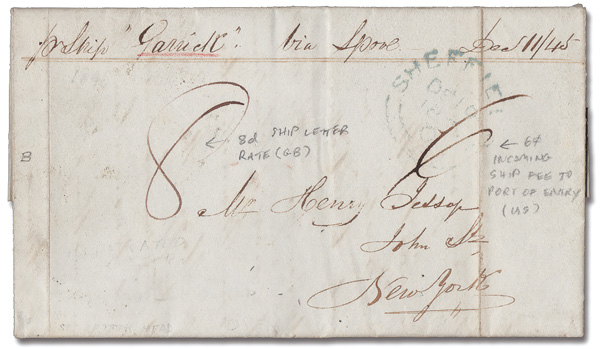 pr Ship "Garrick". Via Lpool Dec 11/45
SHEFFIEL
DE 10
8
6
← 8d SHIP LETTER
RATE (GB)
← 6¢
INCOMING
SHIP FEE TO
PORT OF ENTRY
(US)
B
Mr Henry Jessop
John St
New York